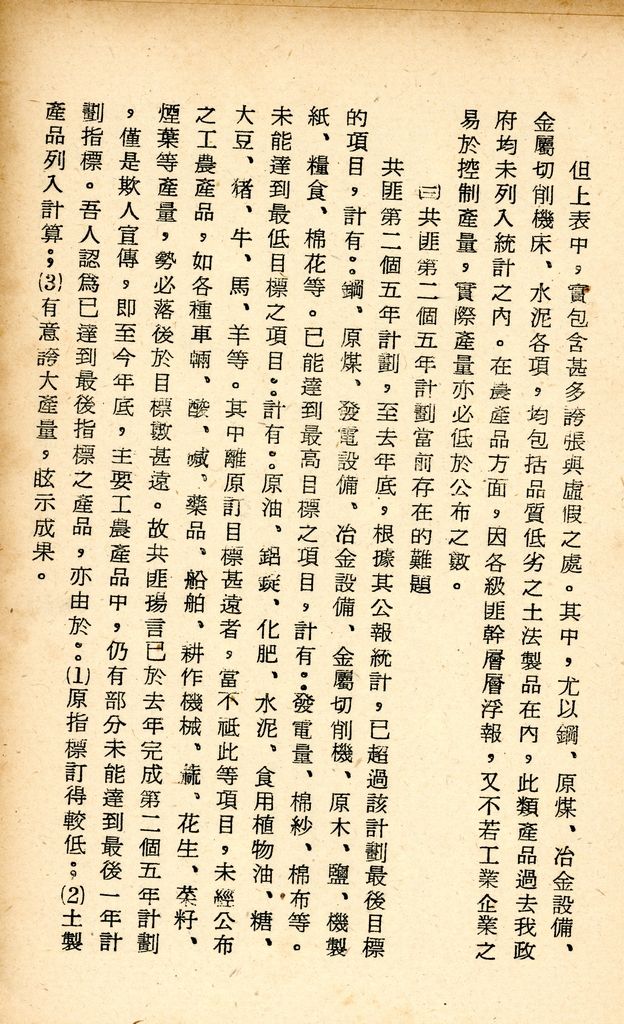 但上表中，實包含甚多誇張與虛假之處。其中，尤以鋼、原煤、冶金設備、
金屬切削機床、水泥各項，均包括品質低劣之土法製品在內，此類產品過去我政
府均未列入統計之內。在農產品方面，因各級匪幹層層浮報，又不若工業企業之
易於控制產量，實際產量亦必低於公布之數。
㈢共匪第二個五年計劃當前存在的難題
共匪第二個五年計劃，至去年底，根據其公報統計，已超過該計劃最後目標
的項目，計有：鋼、原煤、發電設備、冶金設備、金屬切削機、原木、鹽、機製
紙、糧食、棉花等。已能達到最高目標之項目，計有：發電量、棉紗、棉布等。
未能達到最低目標之項目：計有：原油、鋁錠、化肥、水泥、食用植物油、糖、
大豆、猪、牛、馬、羊等。其中離原訂目標甚遠者，當不祇此等項目，未經公布
之工農產品，如各種車輛、酸、碱、藥品、船舶、耕作機械、蔴、花生、菜籽、
煙葉等產量，勢必落後於目標數甚遠。故共匪揚言已於去年完成第二個五年計劃
，僅是欺人宣傳，即至今年底，主要工農產品中，仍有部分未能達到最後一年計
劃指標。吾人認爲已達到最後指標之產品，亦由於：(1)原指標訂得較低；(2)土製
產品列入計算；(3)有意誇大產量，眩示成果。